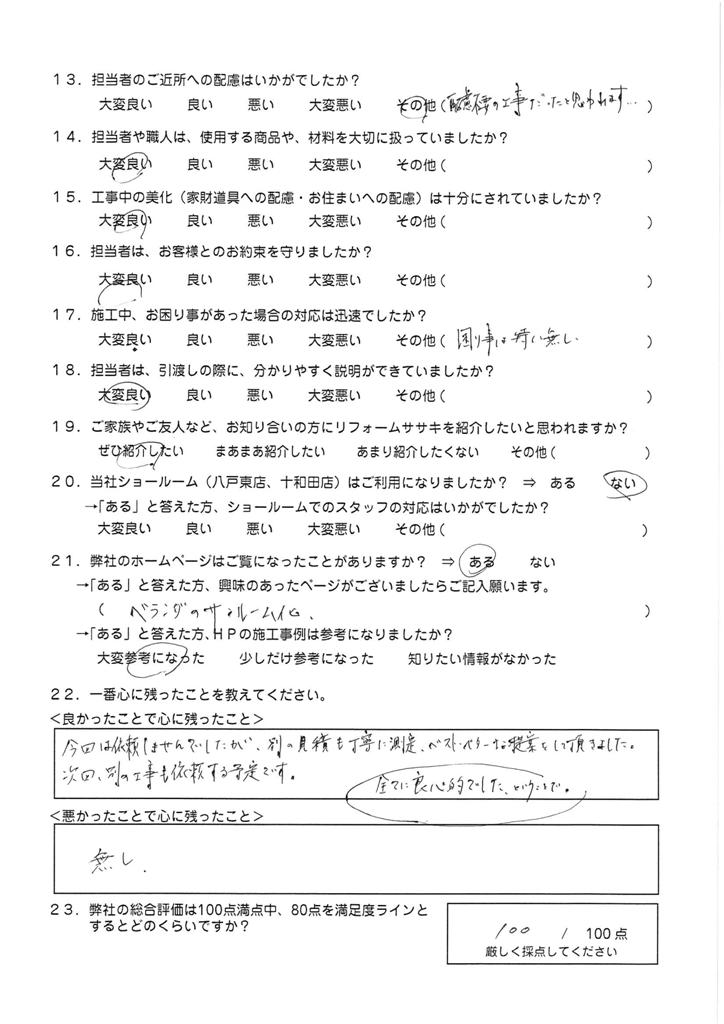 13．担当者のご近所への配慮はいかがでしたか？
大変良い 良い 悪い 大変悪い その他（配慮不要の工事だったと思われます…）
14．担当者や職人は、使用する商品や、材料を大切に扱っていましたか？
大変良い 良い 悪い 大変悪い その他（ ）
15．工事中の美化（家財道具への配慮・お住まいへの配慮）は十分にされていましたか？
大変良い 良い 悪い 大変悪い その他（ ）
16．担当者は、お客様とのお約束を守りましたか？
大変良い 良い 悪い 大変悪い その他（ ）
17．施工中、お困り事があった場合の対応は迅速でしたか？
大変良い 良い 悪い 大変悪い その他（ 困り事は特に無し ）
18．担当者は、引渡しの際に、分かりやすく説明ができていましたか？
大変良い 良い 悪い 大変悪い その他（ ）
19．ご家族やご友人など、お知り合いの方にリフォームササキを紹介したいと思われますか？
ぜひ紹介したい まあまあ紹介したい あまり紹介したくない その他（ ）
20．当社ショールーム（八戸東店、十和田店）はご利用になりましたか？ ⇒ ある ない
→「ある」と答えた方、ショールームでのスタッフの対応はいかがでしたか？
大変良い 良い 悪い 大変悪い その他（ ）
21．弊社のホームページはご覧になったことがありますか？ ⇒ ある ない
→「ある」と答えた方、興味のあったページがございましたらご記入願います。
（ ベランダのサンルーム化、 ）
→「ある」と答えた方、HPの施工事例は参考になりましたか？
大変参考になった 少しだけ参考になった 知りたい情報がなかった
22．一番心に残ったことを教えてください。
<良かったことで心に残ったこと>
今回は依頼しませんでしたが、別の見積も丁寧に測定、ベスト・ベターな提案をして頂きました。
次回、別の工事も依頼する予定です。
全てに良心的でした、ということで。
<悪かったことで心に残ったこと>
無し．
23．弊社の総合評価は100点満点中、80点を満足度ラインと
するとどのくらいですか？
100 / 100点
厳しく採点してください